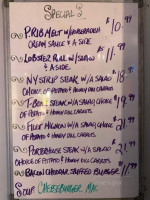 SPECIAL'S
PRIB MELT W/ HORSERADISH $10.99
CREAM SAUCE & A SIDE.
LOBSTER ROLL W/ SLAW & $11.99
A SIDE.
NY STRIP STEAK W/ A SALAD $18.99
CHOICE OF POTATO & HONEY DILL CARROTS
T-BONE STEAK W/ A SALAD, CHOICE $19.99
OF POTATO & HONEY DILL CARROTS
FILET MIGNON W/ A SALAD, CHOICE $21.99
OF POTATO & HONEY DILL CARROTS.
PORTERHOUSE STEAK W/ A SALAD $21.99
CHOICE OF POTATO & HONEY DILL CARROTS.
BACON CHEDDAR STUFFED BURGER $11.99
SOUP CHEESEBURGER MAC